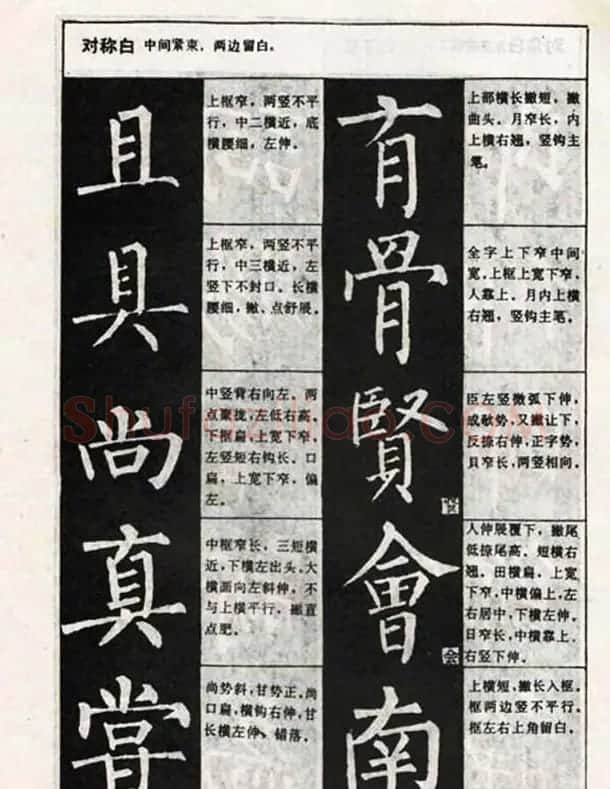 对称白 中间紧束,两边留白。
且
上枢窄,两竖不平
行,中二横近,底
横腰细,左伸。
具
上枢窄,两竖不平
行,中三横近,左
竖下不封口。长横
腰细,撇、点舒展。
尚
中竖背右向左。两
点聚拢,左低右高。
下枢扁,上宽下窄。
左竖短右钩长。口
扁,上宽下窄,偏
左。
真
中枢窄长,三短横
近,下横左出头。大
横面向左斜伸,不
与上横平行。撇直
点肥。
甞
尚势斜,甘势正。尚
口扁,横钩右伸,甘
长横左伸、错落。
有
上部横长撇短,撇
曲头。月窄长,内
上横右翘,竖钩主
笔。
骨
全字上下窄中间
宽。上枢上宽下窄,
人靠上。月内上横
右翘,竖钩主笔。
賢
贤
臣左竖微弧下伸,
成欹势,又撇让下,
反捺右伸,正字势,
貝窄长,两竖相向。
會
会
人伸展覆下,撇尾
低捺尾高。短横右
翘。田横扁,上宽
下窄,中横偏上,左
右居中,下横左伸。
日窄长,中横靠上,
右竖下伸。
南
上横短,撇长入枢。
枢两边竖不平行。
枢左右上角留白。